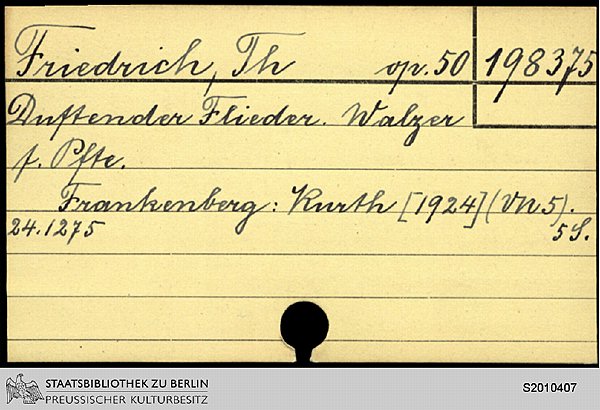 Friedrich, Th op. 50 198375
Duftender Flieder. Walzer
f. Pfte.
Frankenberg: Kurth [1924] (VN 5).
24.1275 5 S.
STAATSBIBLIOTHEK ZU BERLIN
PREUSSISCHER KULTURBESITZ
S2010407